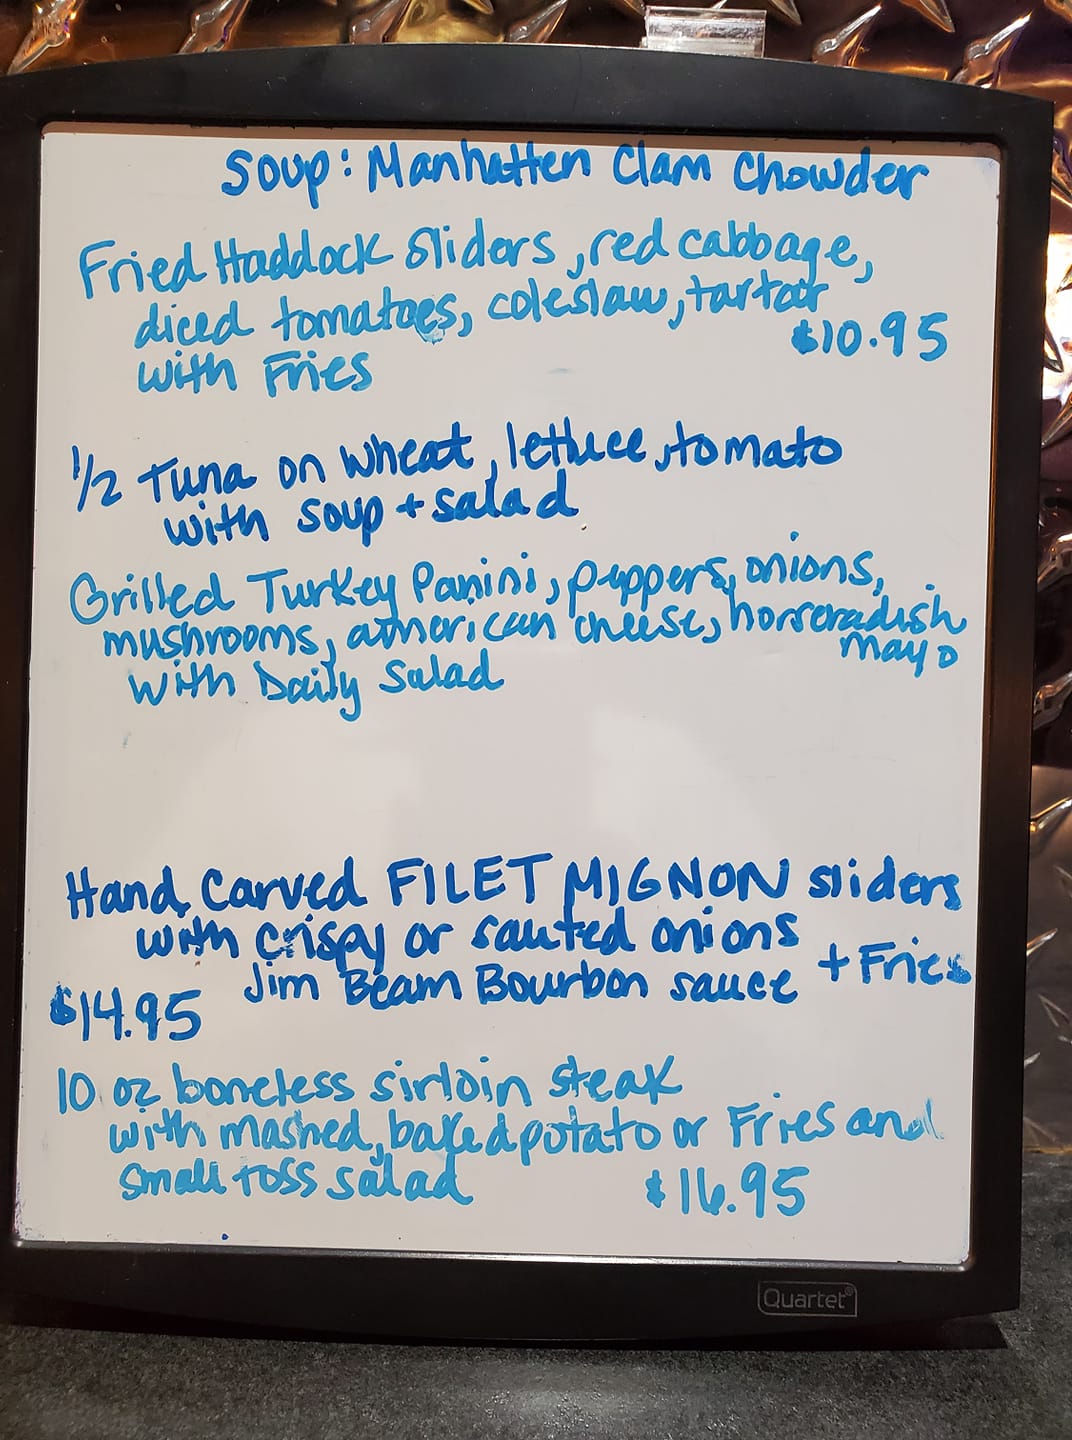 Soup: Manhatten Clam Chowder
Fried Haddock Sliders, red cabbage,
diced tomatoes, coleslaw, tartar
$10.95
with Fries
1/2 Tuna on wheat, lettuce, tomato
with soup + salad
Grilled Turkey Panini, peppers, onions,
mushrooms, american cheese, horseradish
mayo
with Daily Salad
Hand Carved FILET MIGNON sliders
with crispy or sauted onions
+ Fries
Jim Beam Bourbon sauce
$14.95
10 oz boneless sirloin steak
with mashed, baked potato or Fries and
small toss salad $16.95
Quartet®